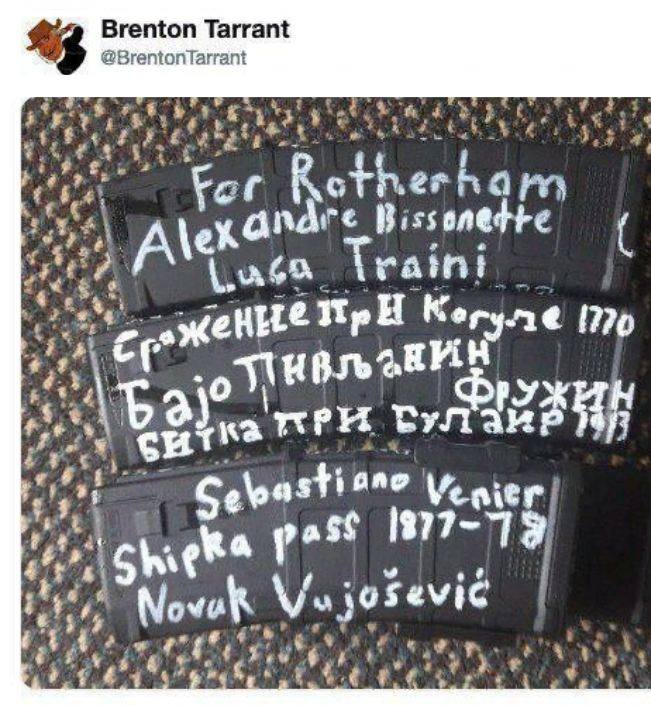 Brenton Tarrant
@BrentonTarrant
For Rotherham
Alexandre Bissonette
Luca Traini
при Кагуле 1770
Бајо Пивљанин
Фружин
Битка при Булаир 1913
Sebastiano Venier
Shipka pass 1877-78
Novak Vujošević